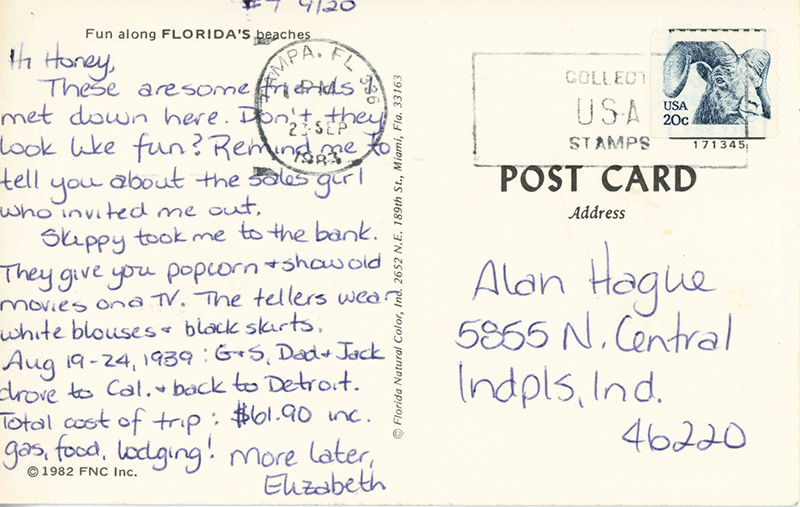 #7 9/20
Fun along FLORIDA'S beaches
Hi Honey,
These are some friends I
met down here. Don't they
look like fun? Remind me to
tell you about the sales girl
who invited me out.
Skippy took me to the bank.
They give you popcorn + show old
movies on a TV. The tellers wear
white blouses + black skirts.
Aug 19-24, 1939: G+S, Dad + Jack
drove to Cal. + back to Detroit.
Total cost of trip: $61.90 inc.
gas, food, lodging! More later,
Elizabeth
© 1982 FNC Inc.
TAMPA, FL 336
PM
23 SEP
1983
© Florida Natural Color, Ind. 2652 N.E. 189th St., Miami, Fla. 33163
COLLECT
USA
STAMPS
USA
20c
171345
POST CARD
Address
Alan Hague
5855 N. Central
Indpls, Ind.
46220